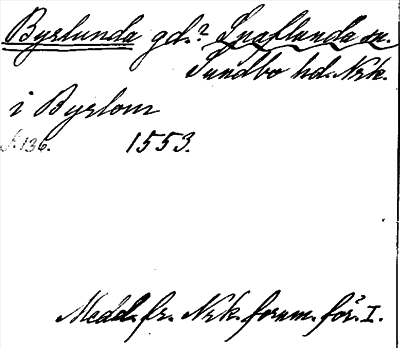 Byslunda gd.? Snaflunda sn.
Sundbo hd. Nrk.
i Byslom
N. 136. 1553.
Medd. fr. Nrk. fornm. för. I.